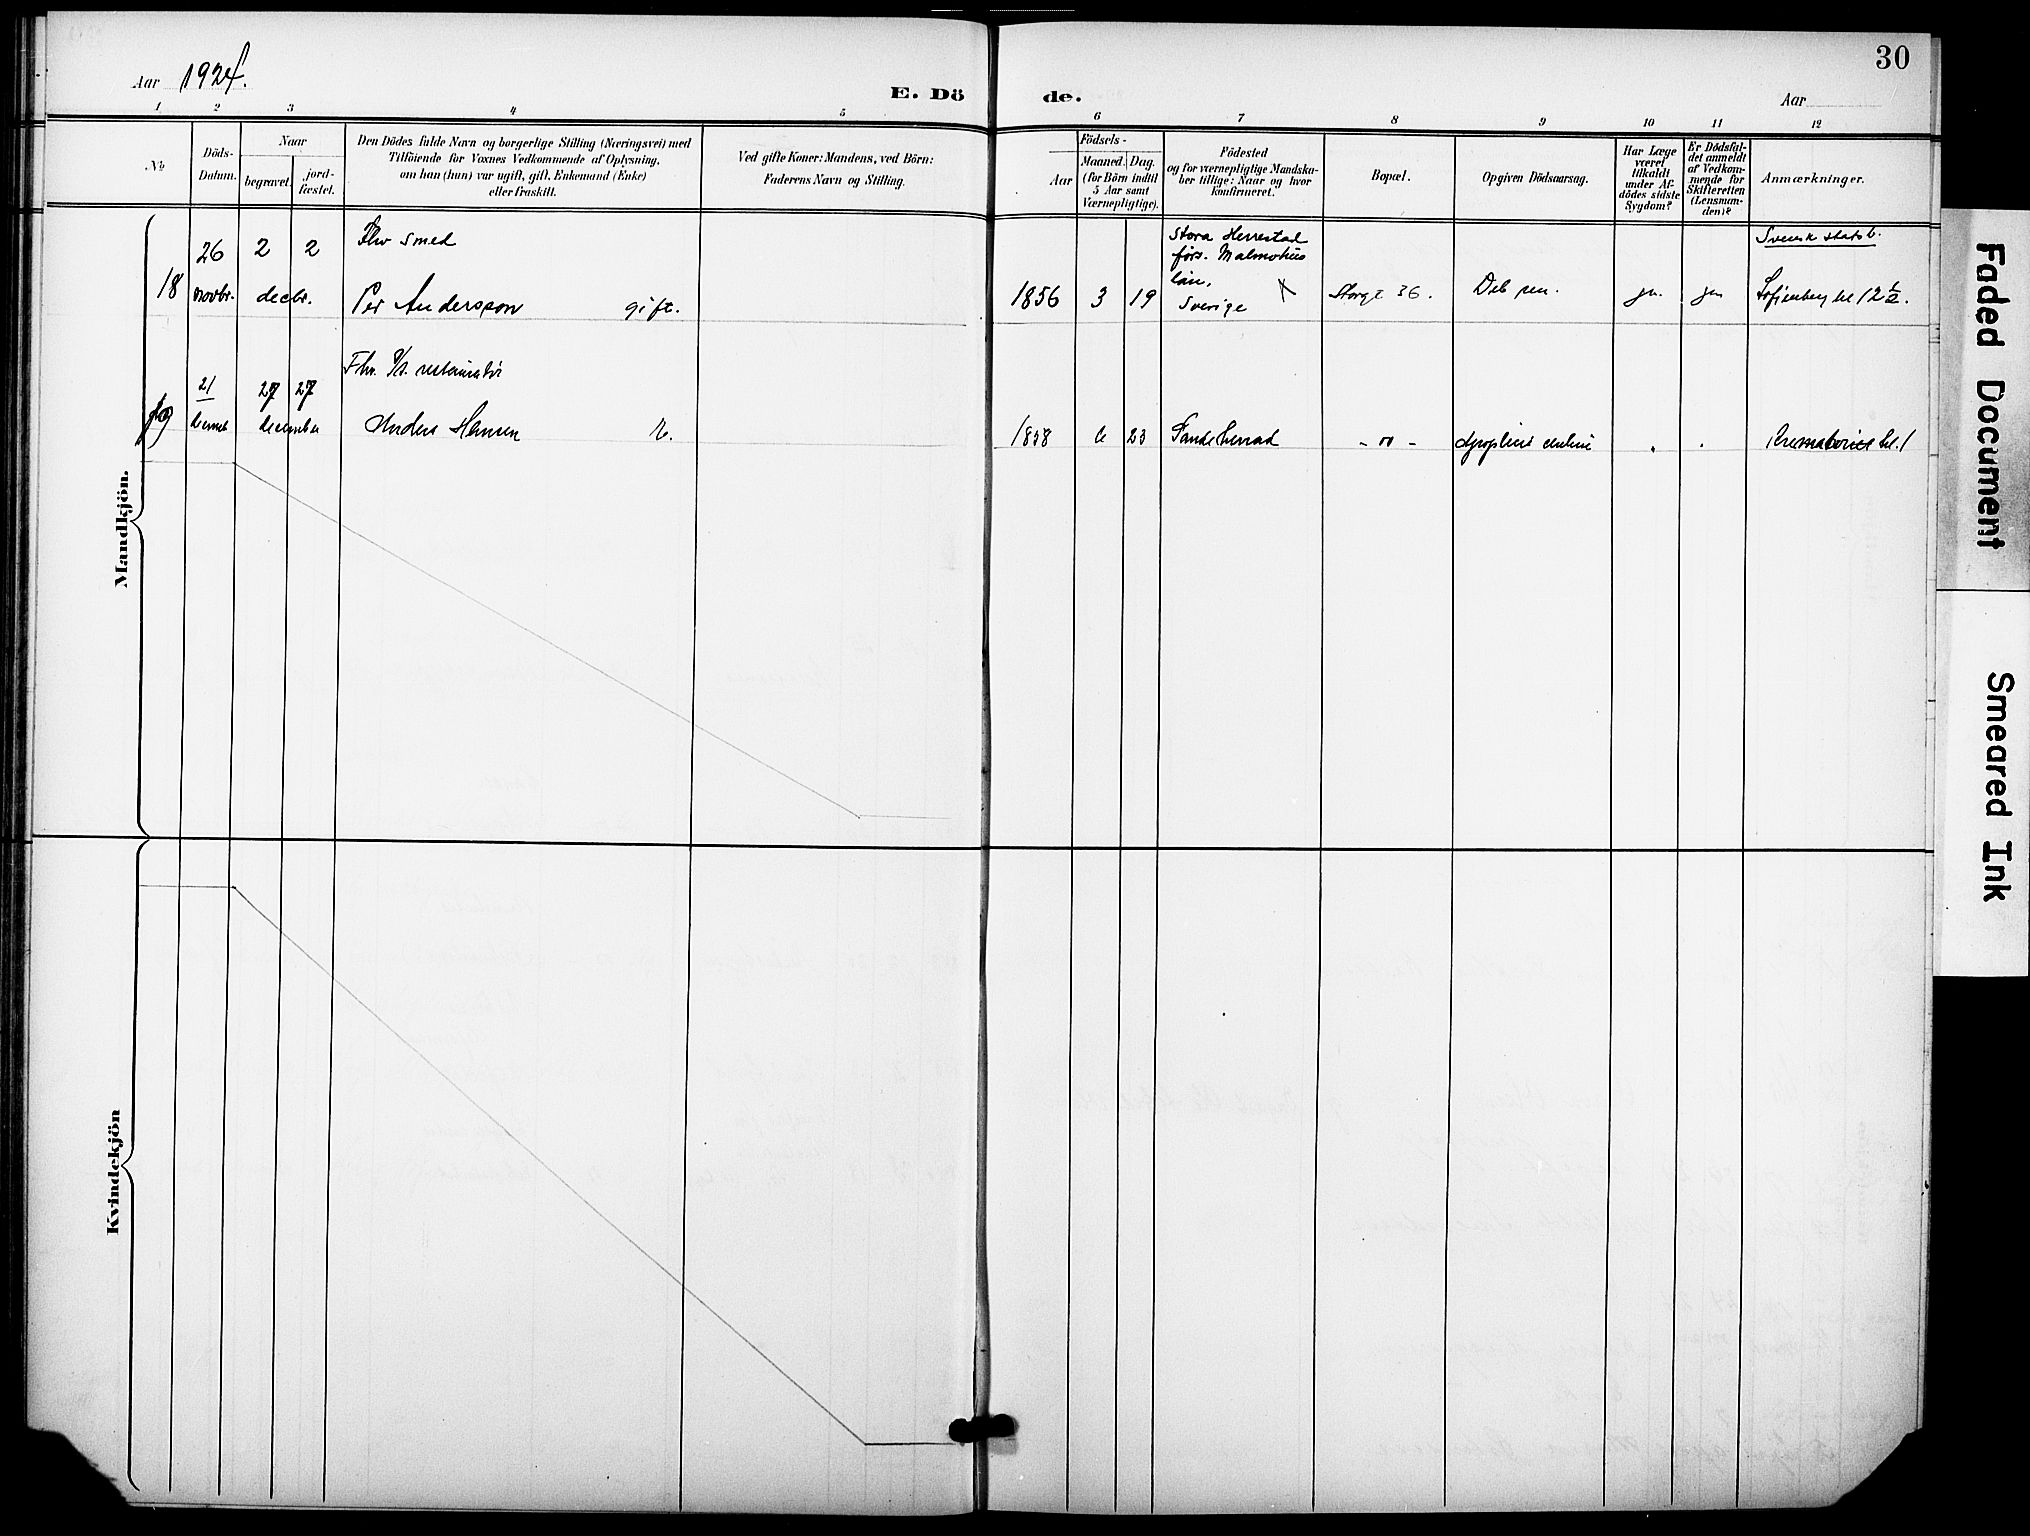 30
Aar 1924.
E. Dö de.
Aar
1 2 3 4 5 6 7 8 9 10 11 12
No
Döds-
Datum.
Naar
begravet.
jord-
fæstet.
Den Dödes fulde Navn og borgerlige Stilling (Næringsvei) med
Tilföiende for Voxnes Vedkommende af Oplysning,
om han (hun) var ugift, gift, Enkemand (Enke)
eller fraskilt.
Ved gifte Koner: Mandens, ved Börn:
Faderens Navn og Stilling.
Födsels-
Aar
Maaned.
Dag.
(for Börn indtil
5 Aar samt
Værnepligtige).
Födested
og for værnepligtige Mandska-
ber tillige: Naar og hvor
konfirmeret.
Bopæl.
Opgiven Dödsaarsag.
Har Læge
været
tilkaldt
under Af-
dödes sidste
Sygdom?
Er Dödsfal-
det anmeldt
af Vedkom-
mende for
Skifteretten
(Lensman-
den)?
Anmærkninger.
Mandkjön.
18
26
novbr.
2 2
decbr.
Fhv smed
Per Andersson gift.
1856 3 19
Stora Herrestad
førs. Malmøhus
län,
Sverige
Storgt 36.
Deb sen.
ja. ja
Svensk statsb.
Sofienberg kl 12 1/2.
19
21
decemb
27 27
december
Fhv. restauratør
Anders Hansen
1858 23
Sande herred
- " -
Krematoriet kl. 1
Kvindekjön
Faded Document
Smeared Ink